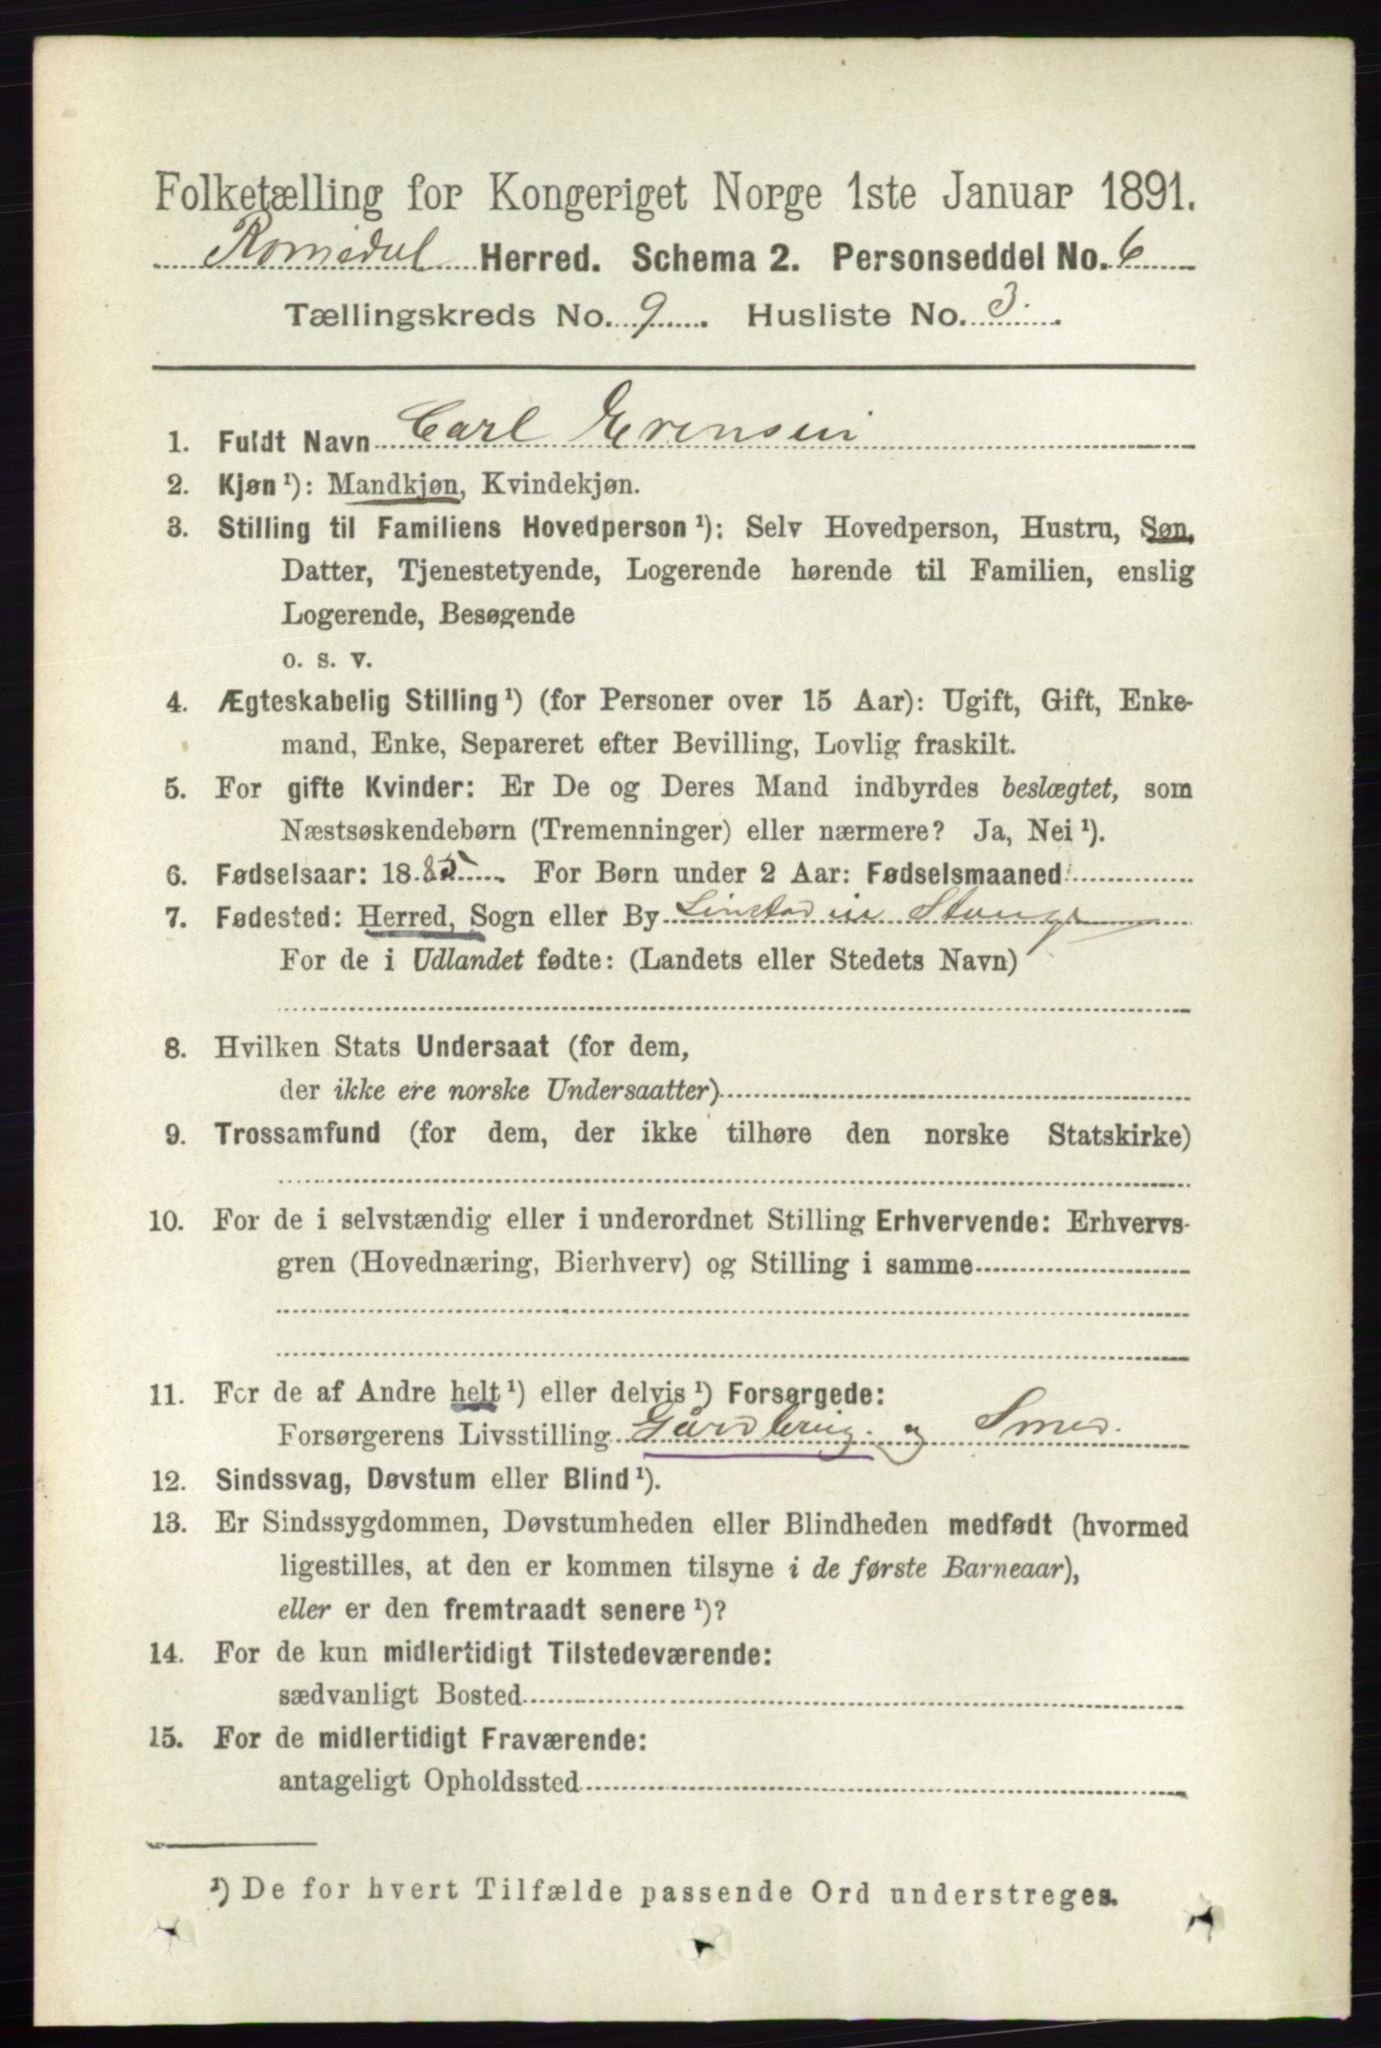 Folketælling for Kongeriget Norge 1ste Januar 1891.
Romedal Herred. Schema 2. Personseddel No. 6
Tællingskreds No. 9. Husliste No. 3.
1. Fuldt Navn Carl Evensen
2. Kjøn ¹): Mandkjøn, Kvindekjøn.
3. Stilling til Familiens Hovedperson ¹): Selv Hovedperson, Hustru, Søn,
Datter, Tjenestetyende, Logerende hørende til Familien, enslig
Logerende, Besøgende
o. s. v.
4. Ægteskabelig Stilling ¹) (for Personer over 15 Aar): Ugift, Gift, Enke-
mand, Enke, Separeret efter Bevilling, Lovlig fraskilt.
5. For gifte Kvinder: Er De og Deres Mand indbyrdes beslægtet, som
Næstsøskendebørn (Tremenninger) eller nærmere? Ja, Nei ¹).
6. Fødselsaar: 1885. For Børn under 2 Aar: Fødselsmaaned
7. Fødested: Herred, Sogn eller By Linstad in Stange
For de i Udlandet fødte: (Landets eller Stedets Navn)
8. Hvilken Stats Undersaat (for dem,
der ikke ere norske Undersaatter)
9. Trossamfund (for dem, der ikke tilhøre den norske Statskirke)
10. For de i selvstændig eller i underordnet Stilling Erhvervende: Erhvervs-
gren (Hovednæring, Bierhverv) og Stilling i samme
11. For de af Andre helt ¹) eller delvis ¹) Forsørgede:
Forsørgerens Livsstilling Gardbrug. og Smed.
12. Sindssvag, Døvstum eller Blind ¹).
13. Er Sindssygdommen, Døvstumheden eller Blindheden medfødt (hvormed
ligestilles, at den er kommen tilsyne i de første Barneaar),
eller er den fremtraadt senere ¹)?
14. For de kun midlertidigt Tilstedeværende:
sædvanligt Bosted
15. For de midlertidigt Fraværende:
antageligt Opholdssted
¹) De for hvert Tilfælde passende Ord understreges.